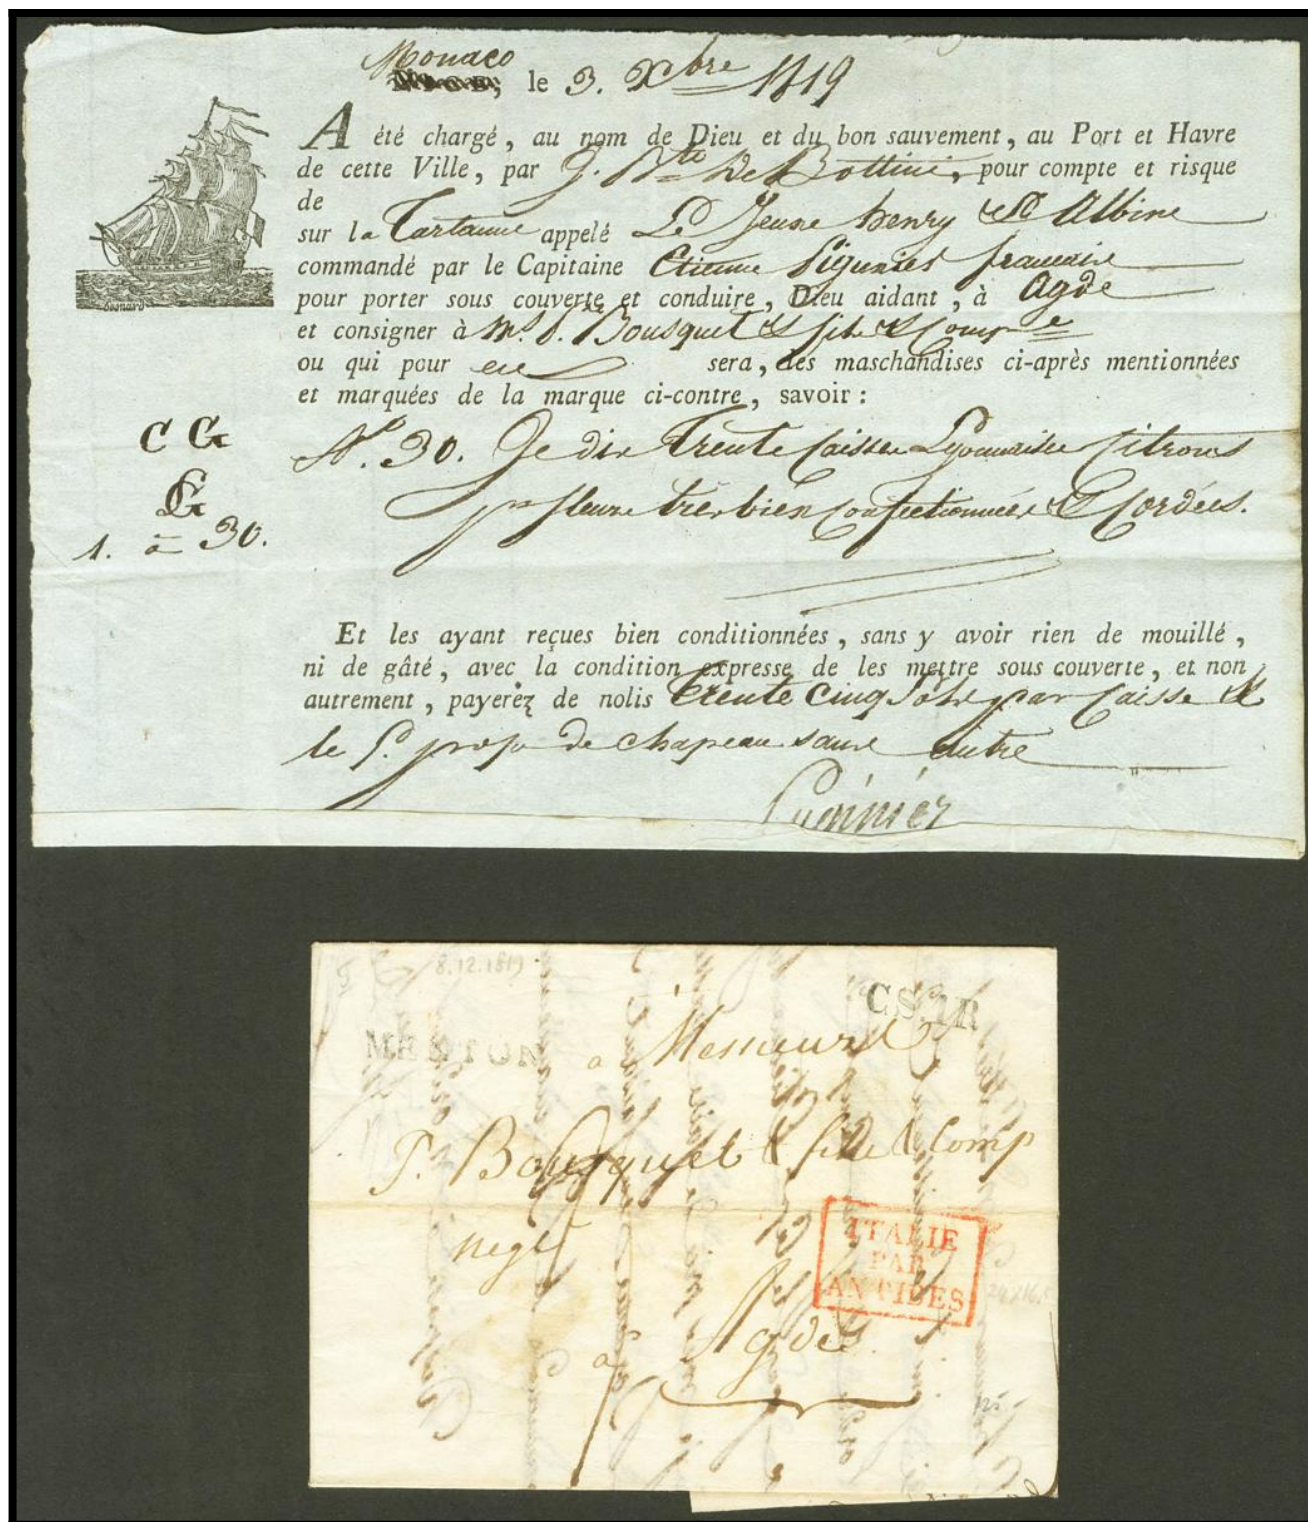 Monaco
le 3. Xbre 1819
A été chargé, au nom de Dieu et du bon sauvement, au Port et Havre
de cette Ville, par J. Bte De Bottini, pour compte et risque
de
sur la Tartanne appelé Le Jeune henry & Albine
commandé par le Capitaine Etienne francaise
pour porter sous couverte et conduire, Dieu aidant, à Agde
et consigner à Mrs. P. Bousquet & fils & Compe
ou qui pour eux sera, des maschandises ci-après mentionnées
et marquées de la marque ci-contre, savoir :
C G
G
1. à 30.
No. 30. Je dis Trente Caisses Lyonnaises Citrons
fleurs très bien confectionnées & Cordées.
Et les ayant reçues bien conditionnées, sans y avoir rien de mouillé,
ni de gâté, avec la condition expresse de les mettre sous couverte, et non
autrement, payerez de nolis trente cinq Sols par Caisse &
le de chapeau sans autre
8.12.1819
C.S.1R
MENTON
a Messieurs
P. Bousquet & fils & Comp
negts
ITALIE
PAR
ANTIBES
24x16.5
a Agde